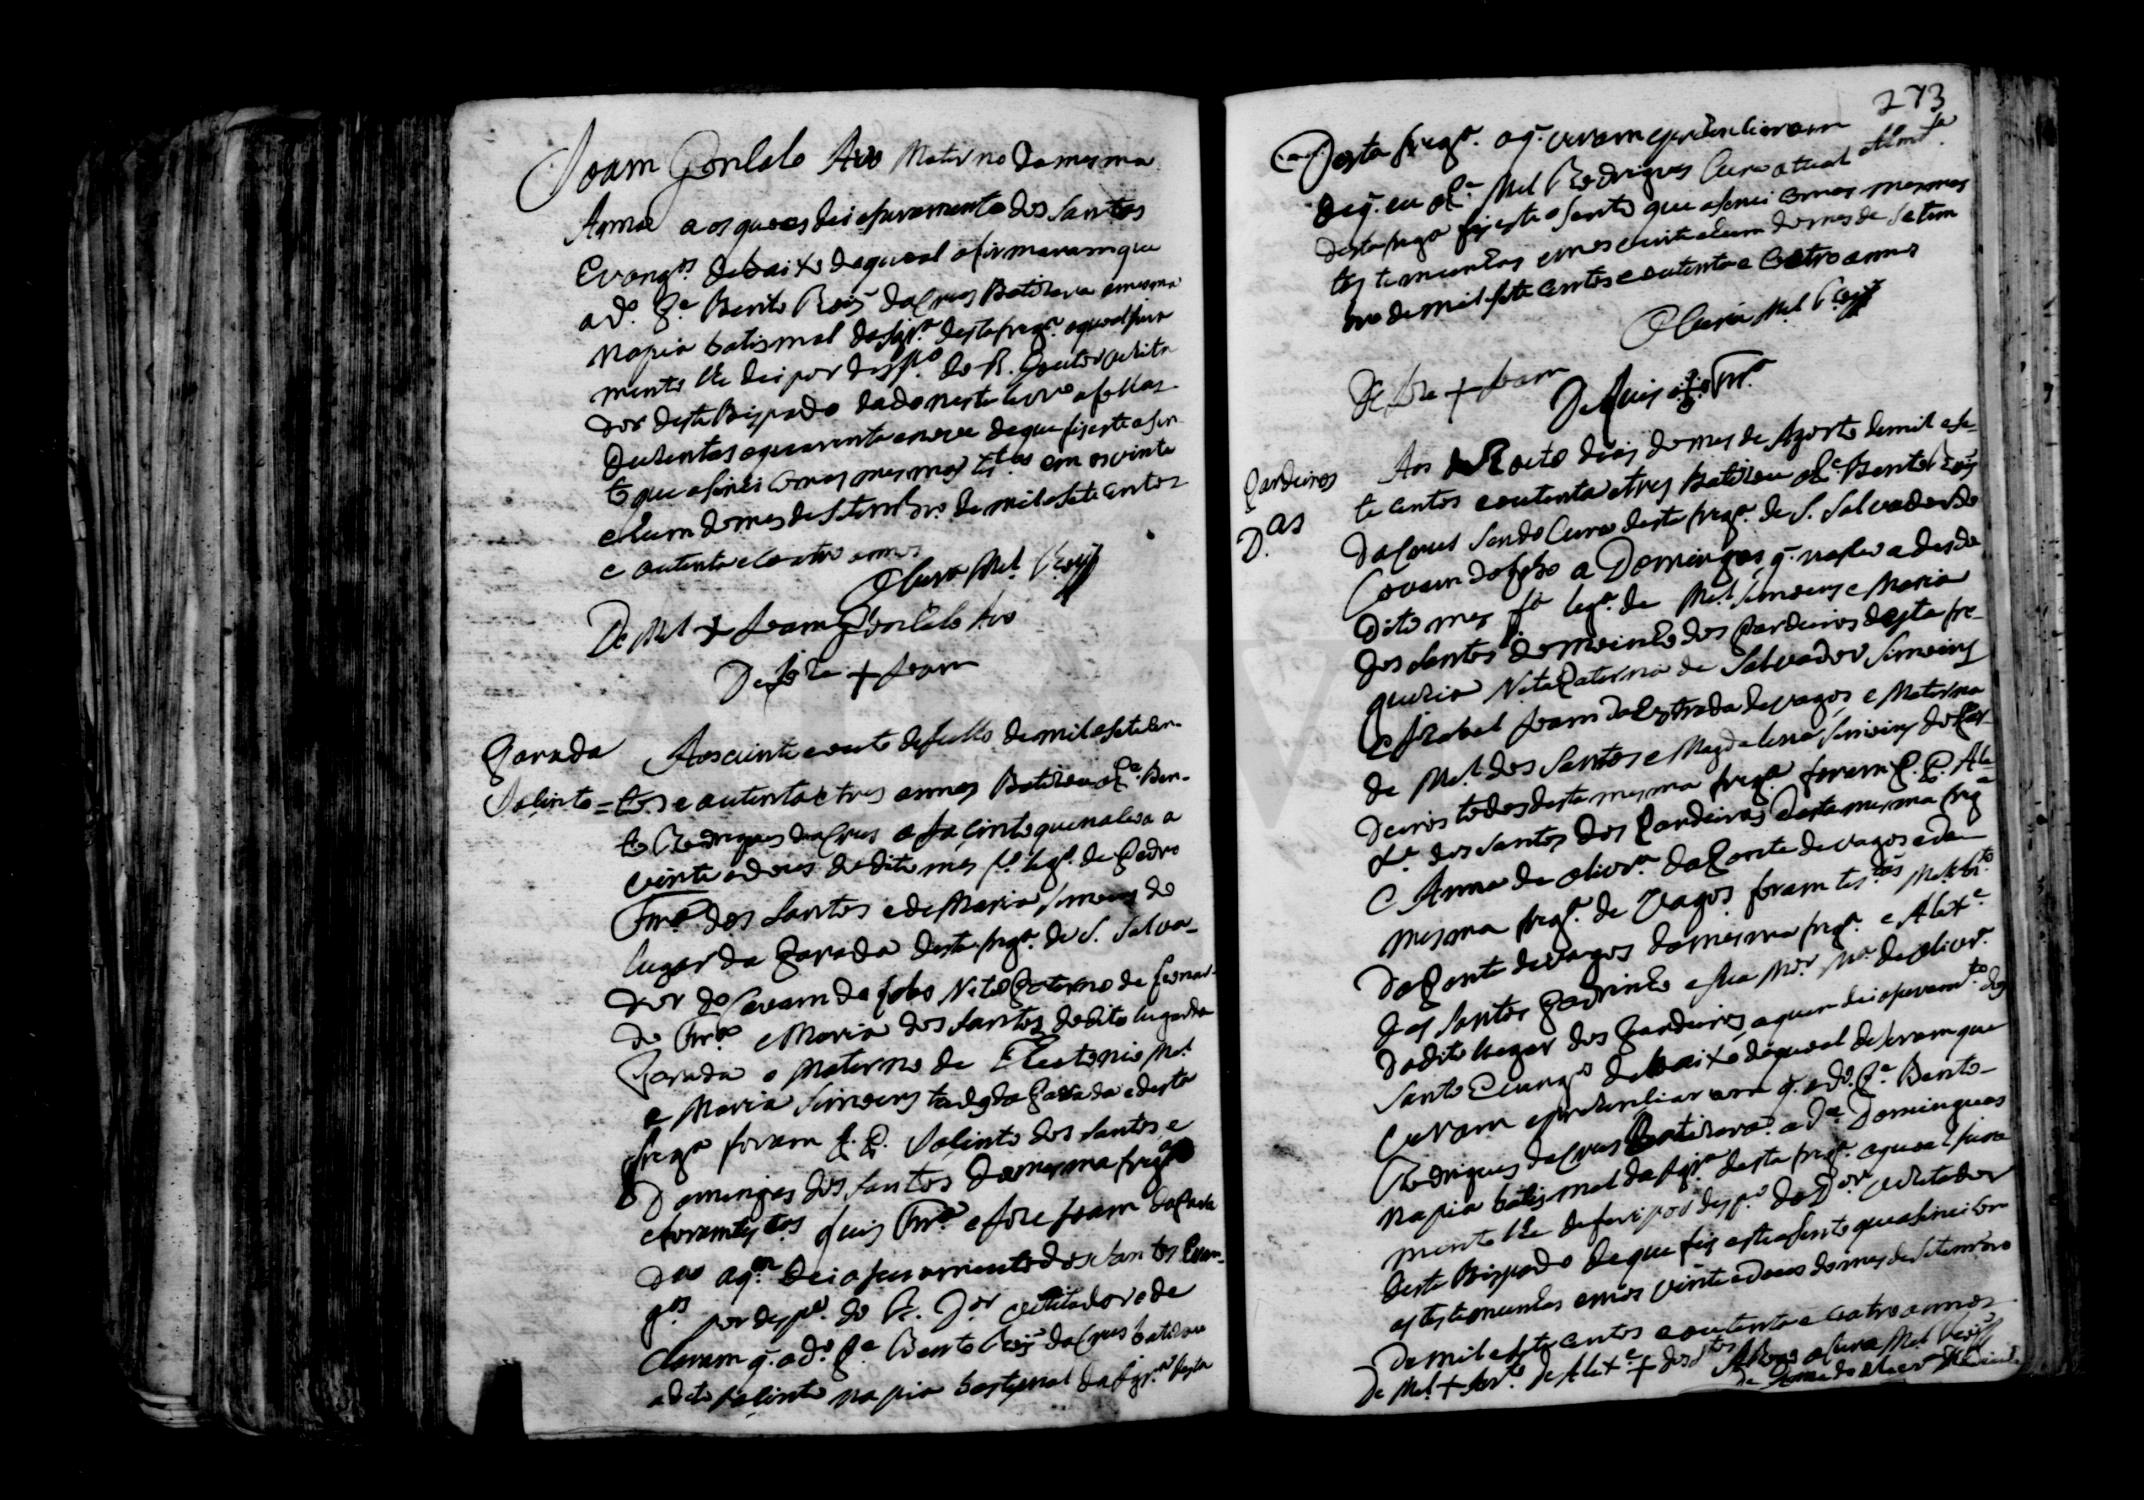 Joam Gonsalo Avo Materno da mesma
Anna aos quaes dei o juramento dos Santos
Evang.os debaixo do qual afirmaram que
o d.o P.e Bento Roiz da Crus Batizara a mesma
na pia batismal da Igr.a desta freg.a o qual jura
mento lhe dei por desp.o do R. Doutor vizita
dor deste Bispado dado neste Livro a folhas
duzentas e quarenta e nove de que fis este asen
to que asinei com as mesmas tt.as em os vinte
e hum do mes de Setembro de mil e sete centos
e outenta e coatro annos
O Cura M.el Roiz
De M.el + Joam Gonsalo Avo
De Joze + Joam
Parada
Jasinto =
Aos vinte e outo de Julho de mil e sete cen
tos e outenta e tres annos Batizou o P.e Ben-
to Rodrigues da Crus a Jasinto que naseo a
vinte e dous do dito mes f.o leg.o de Pedro
Frr.a dos Santos e de Maria Simoens do
lugar da Parada desta freg.a de S. Salva-
dor do Covam do Lobo Neto Paterno de Fernan-
do Frr.a e Maria dos Santos do dito lugar da
Parada e Materno de Theotonio M.el
e Maria Simoens tudo da Parada e desta
freg.a foram P. P. Jasinto dos Santos e
Domingas dos Santos da mesma freg.a
e foram test.as Luis Frr.a e Joze Joam da Para
da a q.m dei o juramento dos Santos Evan-
g.os por desp.o do R. D.or Vizitador e de
claram q. o d.o P.e Bento Roiz da Crus batizou
a dito Jasinto na pia bastismal da Igr.a desta
273
desta freg.a o q. viram e prezenciaram
de q. eu o P.e M.el Rodrigues Cura atual
desta freg.a fis este asento que asinei com as mesmas
testemunhas em os vinte e hum do mes de Setem
bro de mil sete centos e outenta e coatro annos
O Cura M.el Roiz
De Joze + Joam
De Luis + Frr.a
Pardeiros
D.as
Aos dezoito dias do mes de Agosto de mil e se-
te centos e outenta e tres Batizou o P.e Bento Roiz
da Crus sendo Cura desta freg.a de S. Salvador do
Covam do Lobo a Domingas q. nasceo a des do
dito mes f.a leg.a de M.el Simoens e Maria
dos Santos do moinho dos Pardeiros desta fre-
guezia Neta Paterna de Salvador Simoens
e Izabel Joam da Estrada de vagos e Materna
de M.el dos Santos e Magdalena Simoens dos Par-
deiros todos desta mesma freg.a foram P. P. Ale-
x.e dos Santos dos Pardeiros desta mesma freg.a
e Anna de Oliv.ra da Ponte de vagos e da
mesma freg.a de Vagos foram tes.tas M.el
da Ponte de vagos da mesma freg.a e Alex.e
dos Santos Padrinho e sua M.er M.a de Oliv.ra
do dito lugar dos Pardeiros a quem dei o juram.to dos
Santo Evang.o debaixo do qual diseram que
viram e prezenciaram q. o d.o P.e Bento
Rodrigues da Crus Batizara a d.a Domingas
na pia batismal da Igr.a desta freg.a o qual jura
mento lhe deferi por desp.o do D.or vizitador
deste Bispado de que fis este asento que asinei com
as testemunhas em os vinte e dous do mes de Setembro
de mil e sete centos e outenta e coatro annos
De M.el + De Alex.e + dos S.tos O Cura M.el Roiz